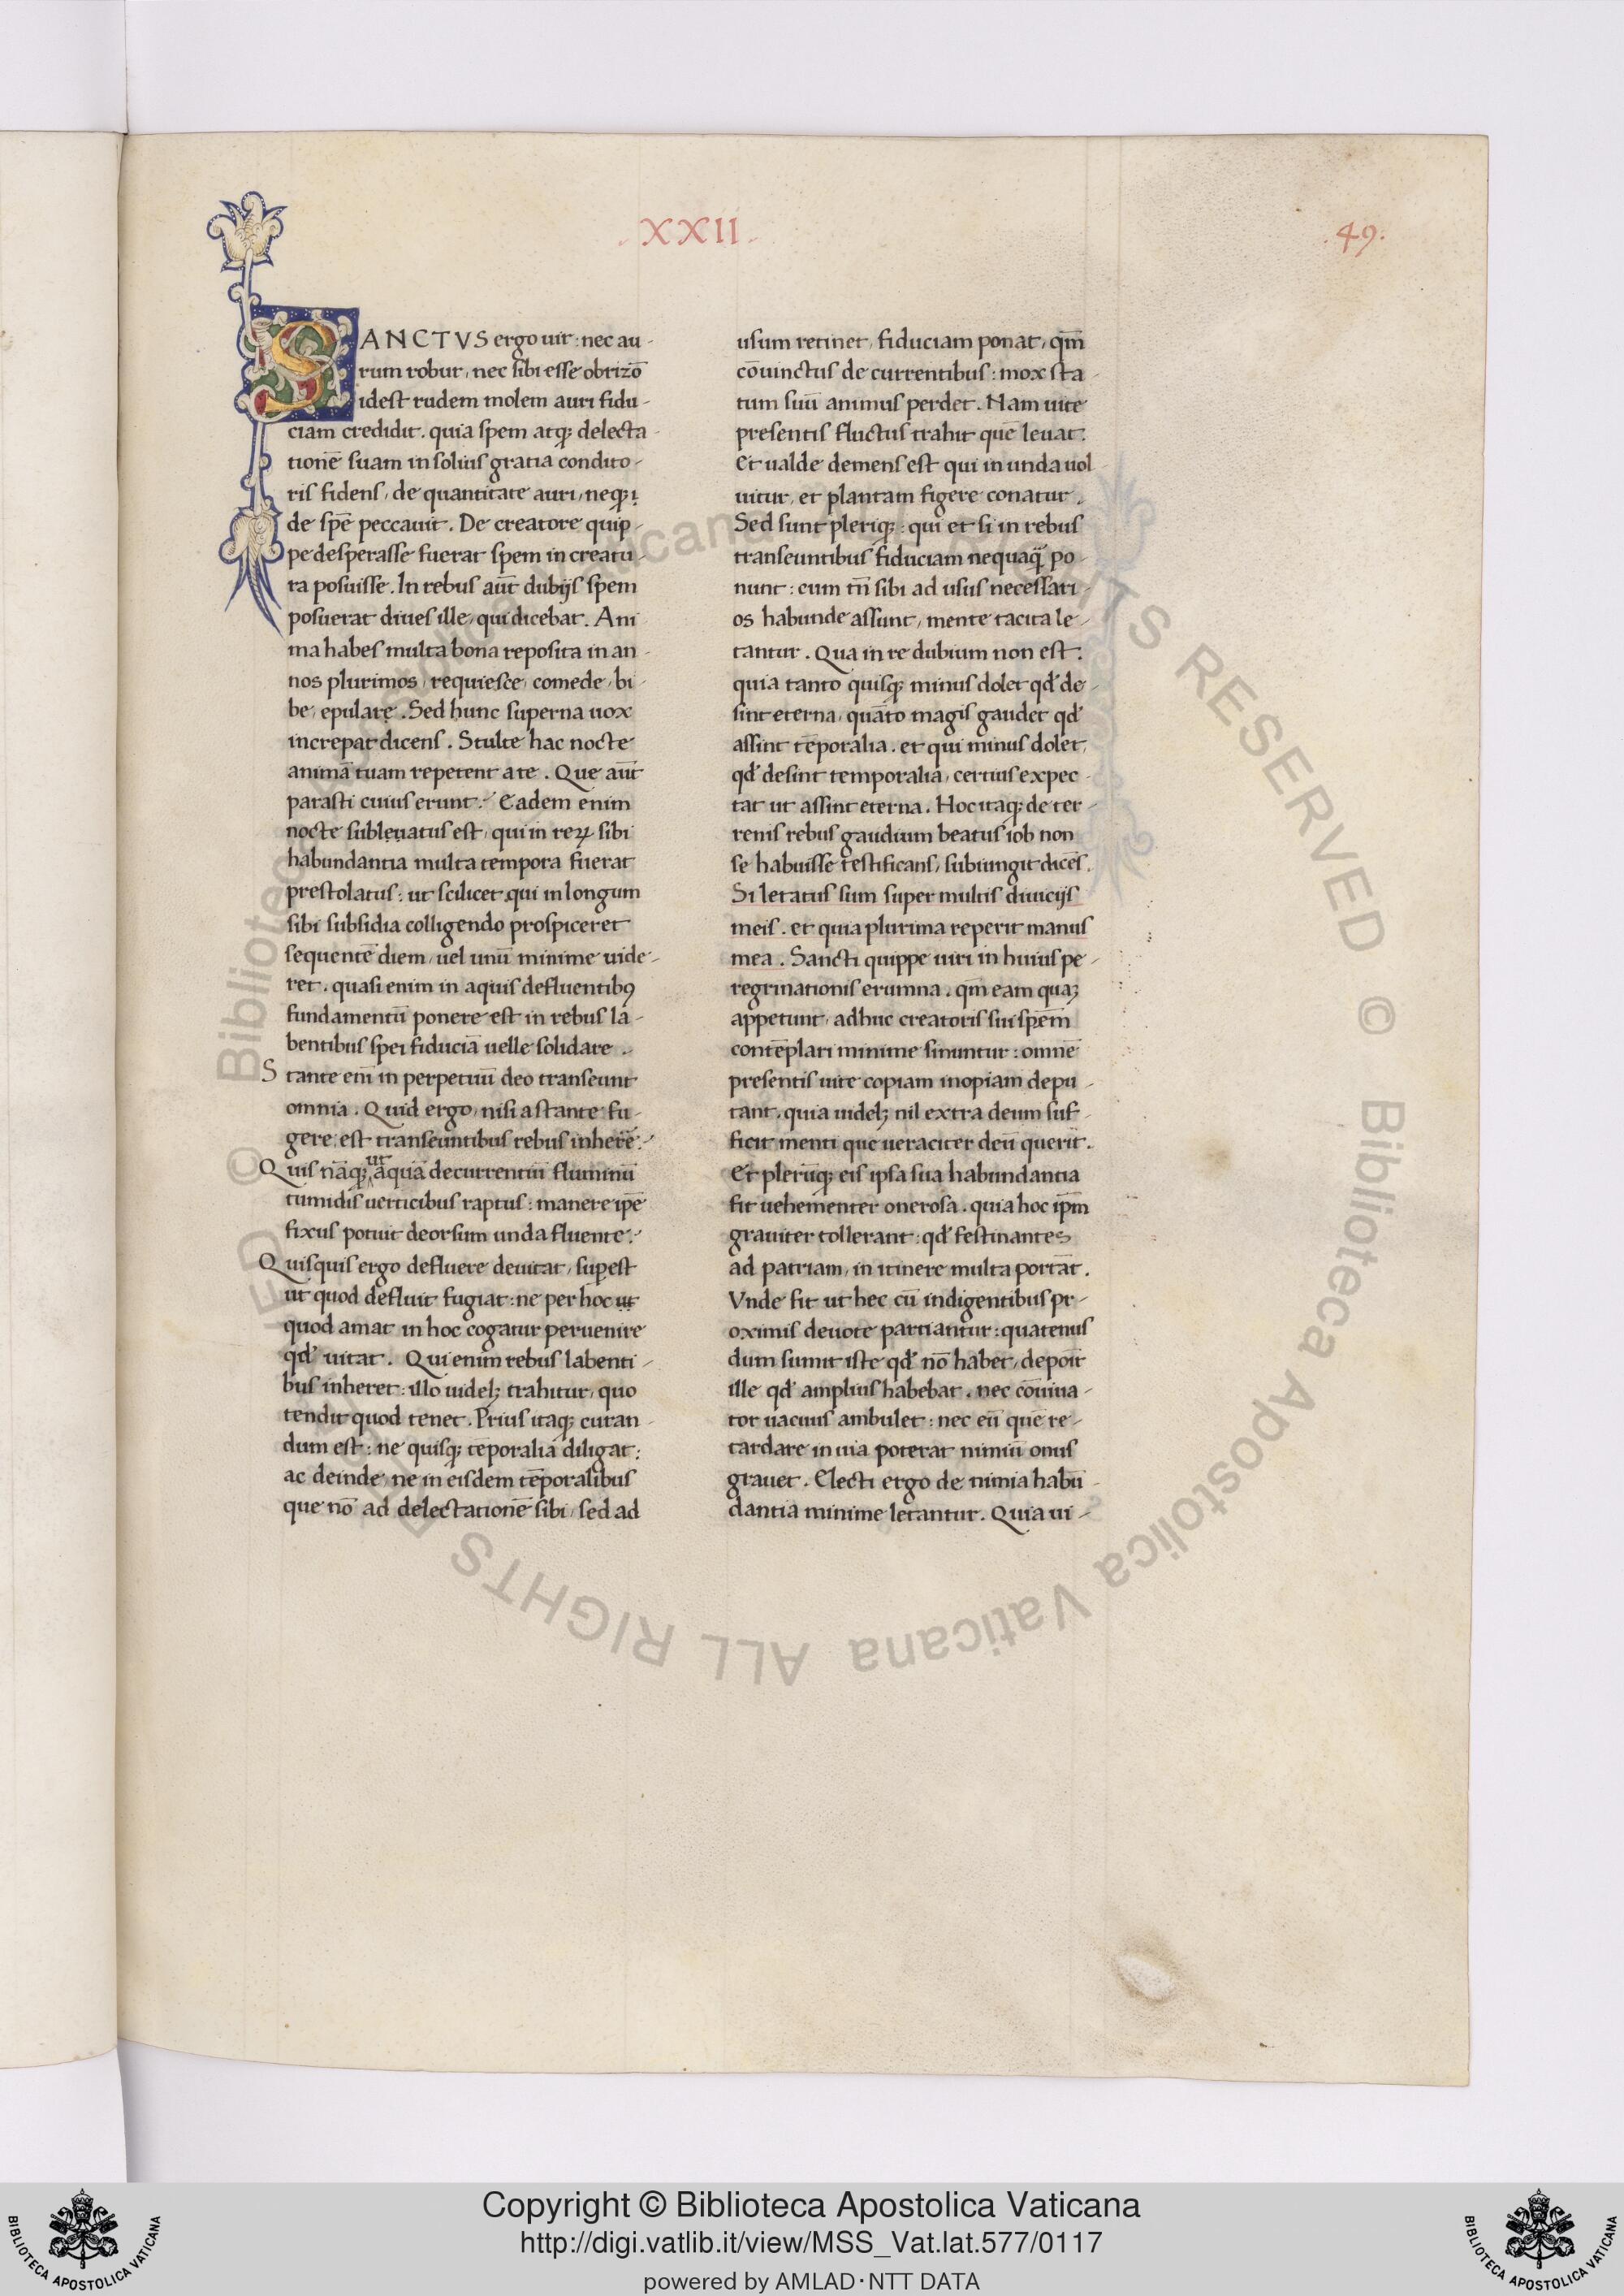 . XXII .
. 49 .
SANCTVS ergo uir : nec au-
rum robur, nec sibi esse obrizō
idest rudem molem auri fidu-
ciam credidit. quia spem atq; delecta-
tionē suam in solius gratia condito-
ris fidens, de quantitate auri, neq; ī
de spē peccauit. De creatore quip-
pe desperasse fuerat spem in creatu-
ra posuisse. In rebus aūt dubijs spem
posuerat diues ille, qui dicebat. Ani
ma habes multa bona reposita in an-
nos plurimos, requiesce, comede, bi-
be, epulare. Sed hunc superna uox
increpat dicens. Stulte hac nocte
animā tuam repetent a te. Que aūt
parasti cuius erunt? Eadem enim
nocte subleuatus est, qui in reꝝ sibi
habundantia multa tempora fuerat
prestolatus : ut scilicet qui in longum
sibi subsidia colligendo prospiceret
sequentē diem, uel unū minime uide-
ret. quasi enim in aquis defluentibꝰ
fundamentū ponere est in rebus la-
bentibus spei fiduciā uelle solidare.
Stante enī in perpetuū deo transeunt
omnia. Quid ergo, nisi a stante fu-
gere est transeuntibus rebus inherē?
Quis nāq; ut aqua decurrentiū fluminū
tumidis uerticibus raptus : manere ip̄e
fixus potuit deorsum unda fluente?
Quisquis ergo defluere deuitat, sup̱est
ut quod defluit fugiat : ne per hoc ut
quod amat in hoc cogatur peruenire
qd' uitat. Qui enim rebus labenti-
bus inheret : illo uidelꝫ trahitur, quo
tendit quod tenet. Prius itaq; curan-
dum est : ne quisq; tēporalia diligat :
ac deinde, ne in eisdem tēporalibus
que nō ad delectationē sibi, sed ad
usum retinet, fiduciam ponat, qm̄
cōuinctus decurrentibus : mox sta-
tum suū animus perdet. Nam uite
presentis fluctus trahit quē leuat.
Et ualde demens est qui in unda uol
uitur, et plantam figere conatur.
Sed sunt pleriq; : qui et si in rebus
transeuntibus fiduciam nequaq̄ po-
nunt : cum tn̄ sibi ad usus necessari-
os habunde assunt, mente tacita le-
tantur. Qua in re dubium non est.
quia tanto quisq; minus dolet qd' de-
sint eterna, quāto magis gaudet qd'
assint tēporalia. et qui minus dolet,
qd' desint temporalia, certius expec-
tat ut assint eterna. Hoc itaq; de ter-
renis rebus gaudium beatus iob non
se habuisse testificans, subiungit dicēs.
Si letatus sum super multis diuicijs
meis. et quia plurima reperit manus
mea. Sancti quippe uiri in huius pe-
regrinationis erumna. qm̄ eam quaꝫ
appetunt, adhuc creatoris sui spēm
contēplari minime sinuntur : omnē
presentis uite copiam inopiam depu-
tant. quia uidelꝫ nil extra deum suf-
ficit menti que ueraciter deū querit.
Et plerūq; eis ipsa sua habundantia
fit uehementer onerosa. quia hoc ip̄m
grauiter tollerant : qd' festinantes
ad patriam, in itinere multa portāt.
Vnde fit ut hec cū indigentibus pr-
oximis deuote partiantur : quatenus
dum sumit iste qd' nō habet, deponit
ille qd' amplius habebat. nec cōuiua-
tor uacuus ambulet : nec eū quē re-
tardare in uia poterat nimiū onus
grauet. Electi ergo de nimia habū-
dantia minime letantur. Quia ui-
© Biblioteca Apostolica Vaticana ALL RIGHTS RESERVED © Biblioteca Apostolica Vaticana ALL RIGHTS RESERVED
Copyright © Biblioteca Apostolica Vaticana
http://digi.vatlib.it/view/MSS_Vat.lat.577/0117
powered by AMLAD·NTT DATA
BIBLIOTECA APOSTOLICA VATICANA
BIBLIOTECA APOSTOLICA VATICANA